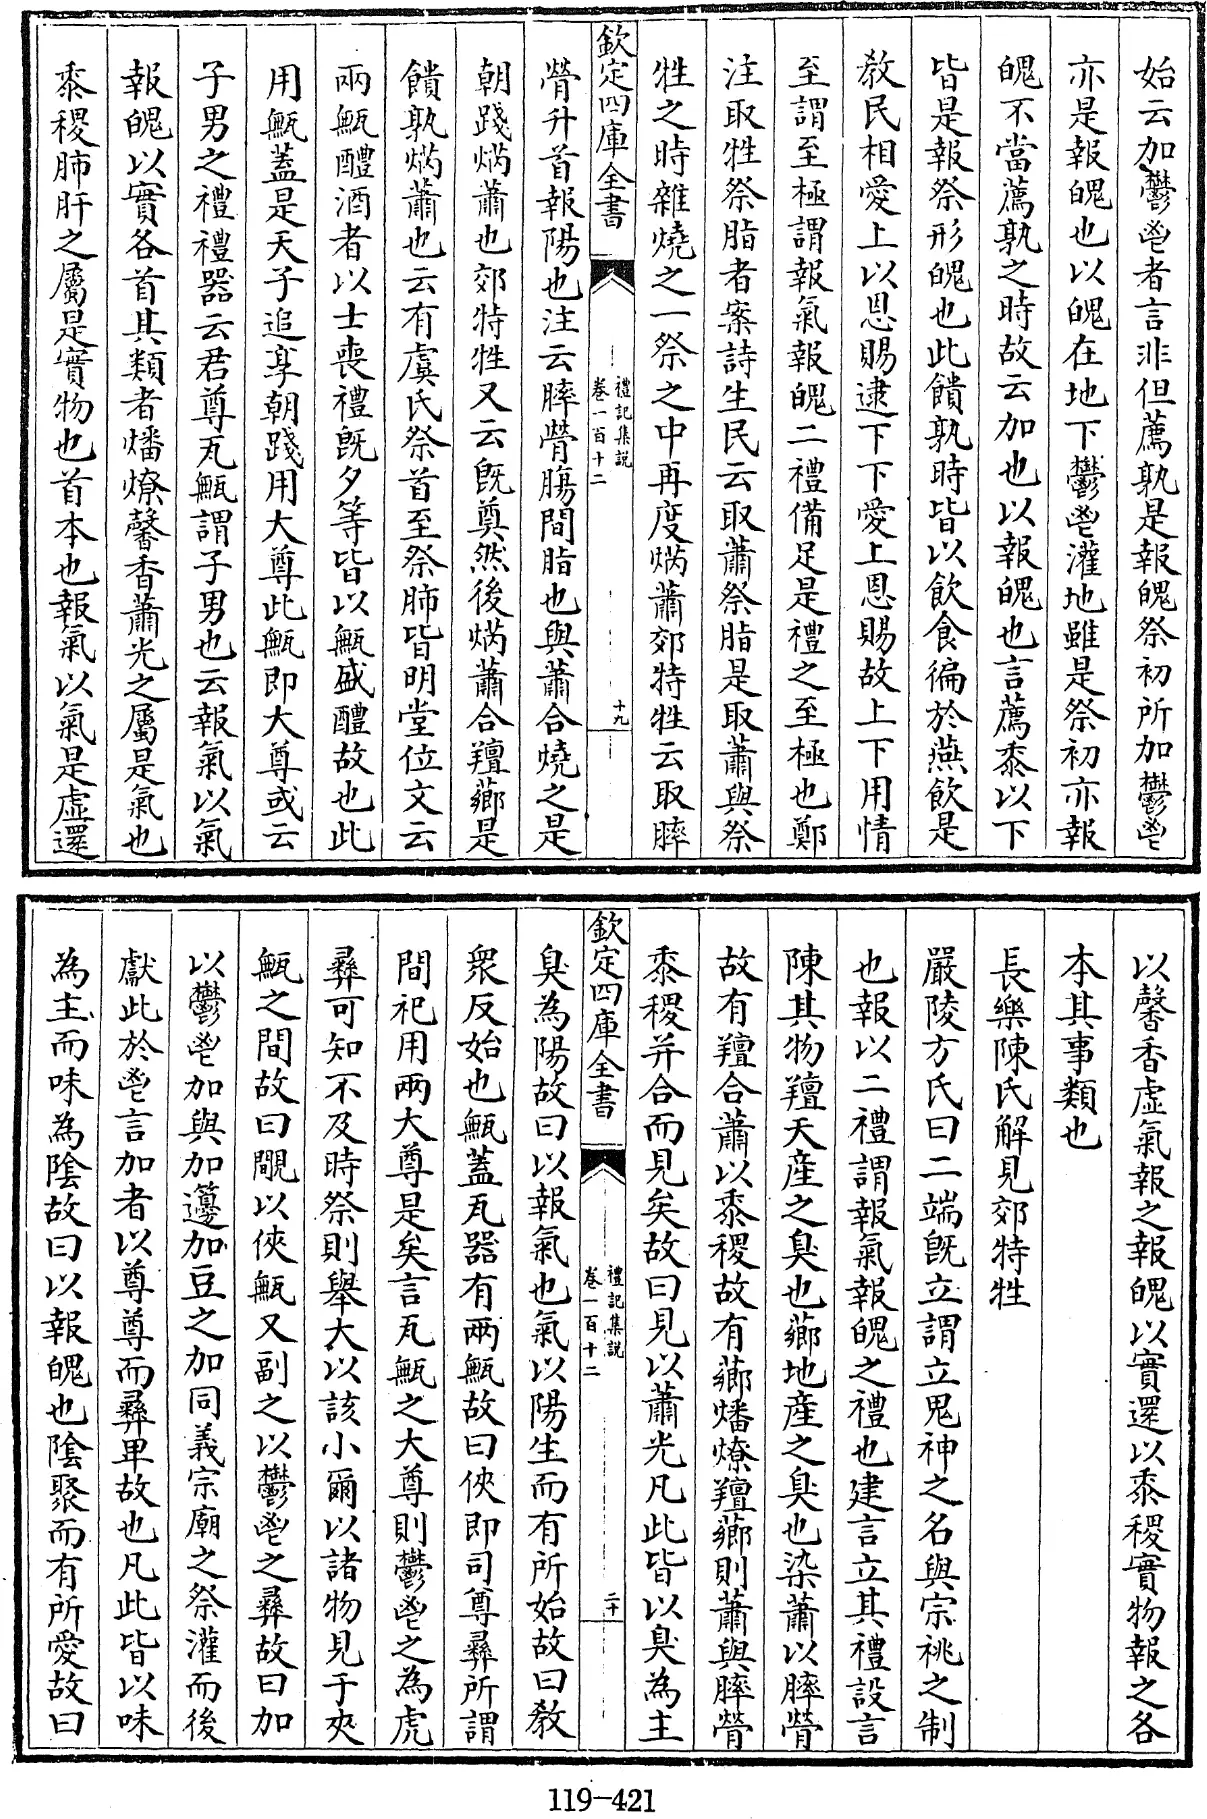 始云加鬱鬯者言非但薦孰是報魄祭初所加鬱鬯
亦是報魄也以魄在地下鬱鬯灌地雖是祭初亦報
魄不當薦孰之時故云加也以報魄也言薦黍以下
皆是報祭形魄也此饋孰時皆以飲食徧於燕飲是
教民相愛上以恩賜逮下下愛上恩賜故上下用情
至謂至極謂報氣報魄二禮備足是禮之至極也鄭
注取牲祭脂者案詩生民云取蕭祭脂是取蕭與祭
牲之時雜燒之一祭之中再度焫蕭郊特牲云取膟
欽定四庫全書
禮記集説
卷一百十二
十九
膋升首報陽也注云膟膋腸間脂也與蕭合燒之是
朝踐焫蕭也郊特牲又云既奠然後焫蕭合羶薌是
饋孰焫蕭也云有虞氏祭首至祭肺皆明堂位文云
兩甒醴酒者以士喪禮既夕等皆以甒盛醴故也此
用甒蓋是天子追享朝踐用大尊此甒即大尊或云
子男之禮禮器云君尊瓦甒謂子男也云報氣以氣
報魄以實各首其類者燔燎馨香蕭光之屬是氣也
黍稷肺肝之屬是實物也首本也報氣以氣是虛還
以馨香虛氣報之報魄以實還以黍稷實物報之各
本其事類也
長樂陳氏解見郊特牲
嚴陵方氏曰二端既立謂立鬼神之名與宗祧之制
也報以二禮謂報氣報魄之禮也建言立其禮設言
陳其物羶天産之臭也薌地産之臭也染蕭以膟膋
故有羶合蕭以黍稷故有薌燔燎羶薌則蕭與膟膋
黍稷并合而見矣故曰見以蕭光凡此皆以臭為主
欽定四庫全書
禮記集説
卷一百十二
二十
臭為陽故曰以報氣也氣以陽生而有所始故曰教
衆反始也甒蓋瓦器有兩甒故曰俠即司尊彞所謂
間祀用兩大尊是矣言瓦甒之大尊則鬱鬯之為虎
彞可知不及時祭則舉大以該小爾以諸物見于夾
甒之間故曰覵以俠甒又副之以鬱鬯之彞故曰加
以鬱鬯加與加籩加豆之加同義宗廟之祭灌而後
獻此於鬯言加者以尊尊而彞卑故也凡此皆以味
為主而味為陰故曰以報魄也陰聚而有所愛故曰
119-421